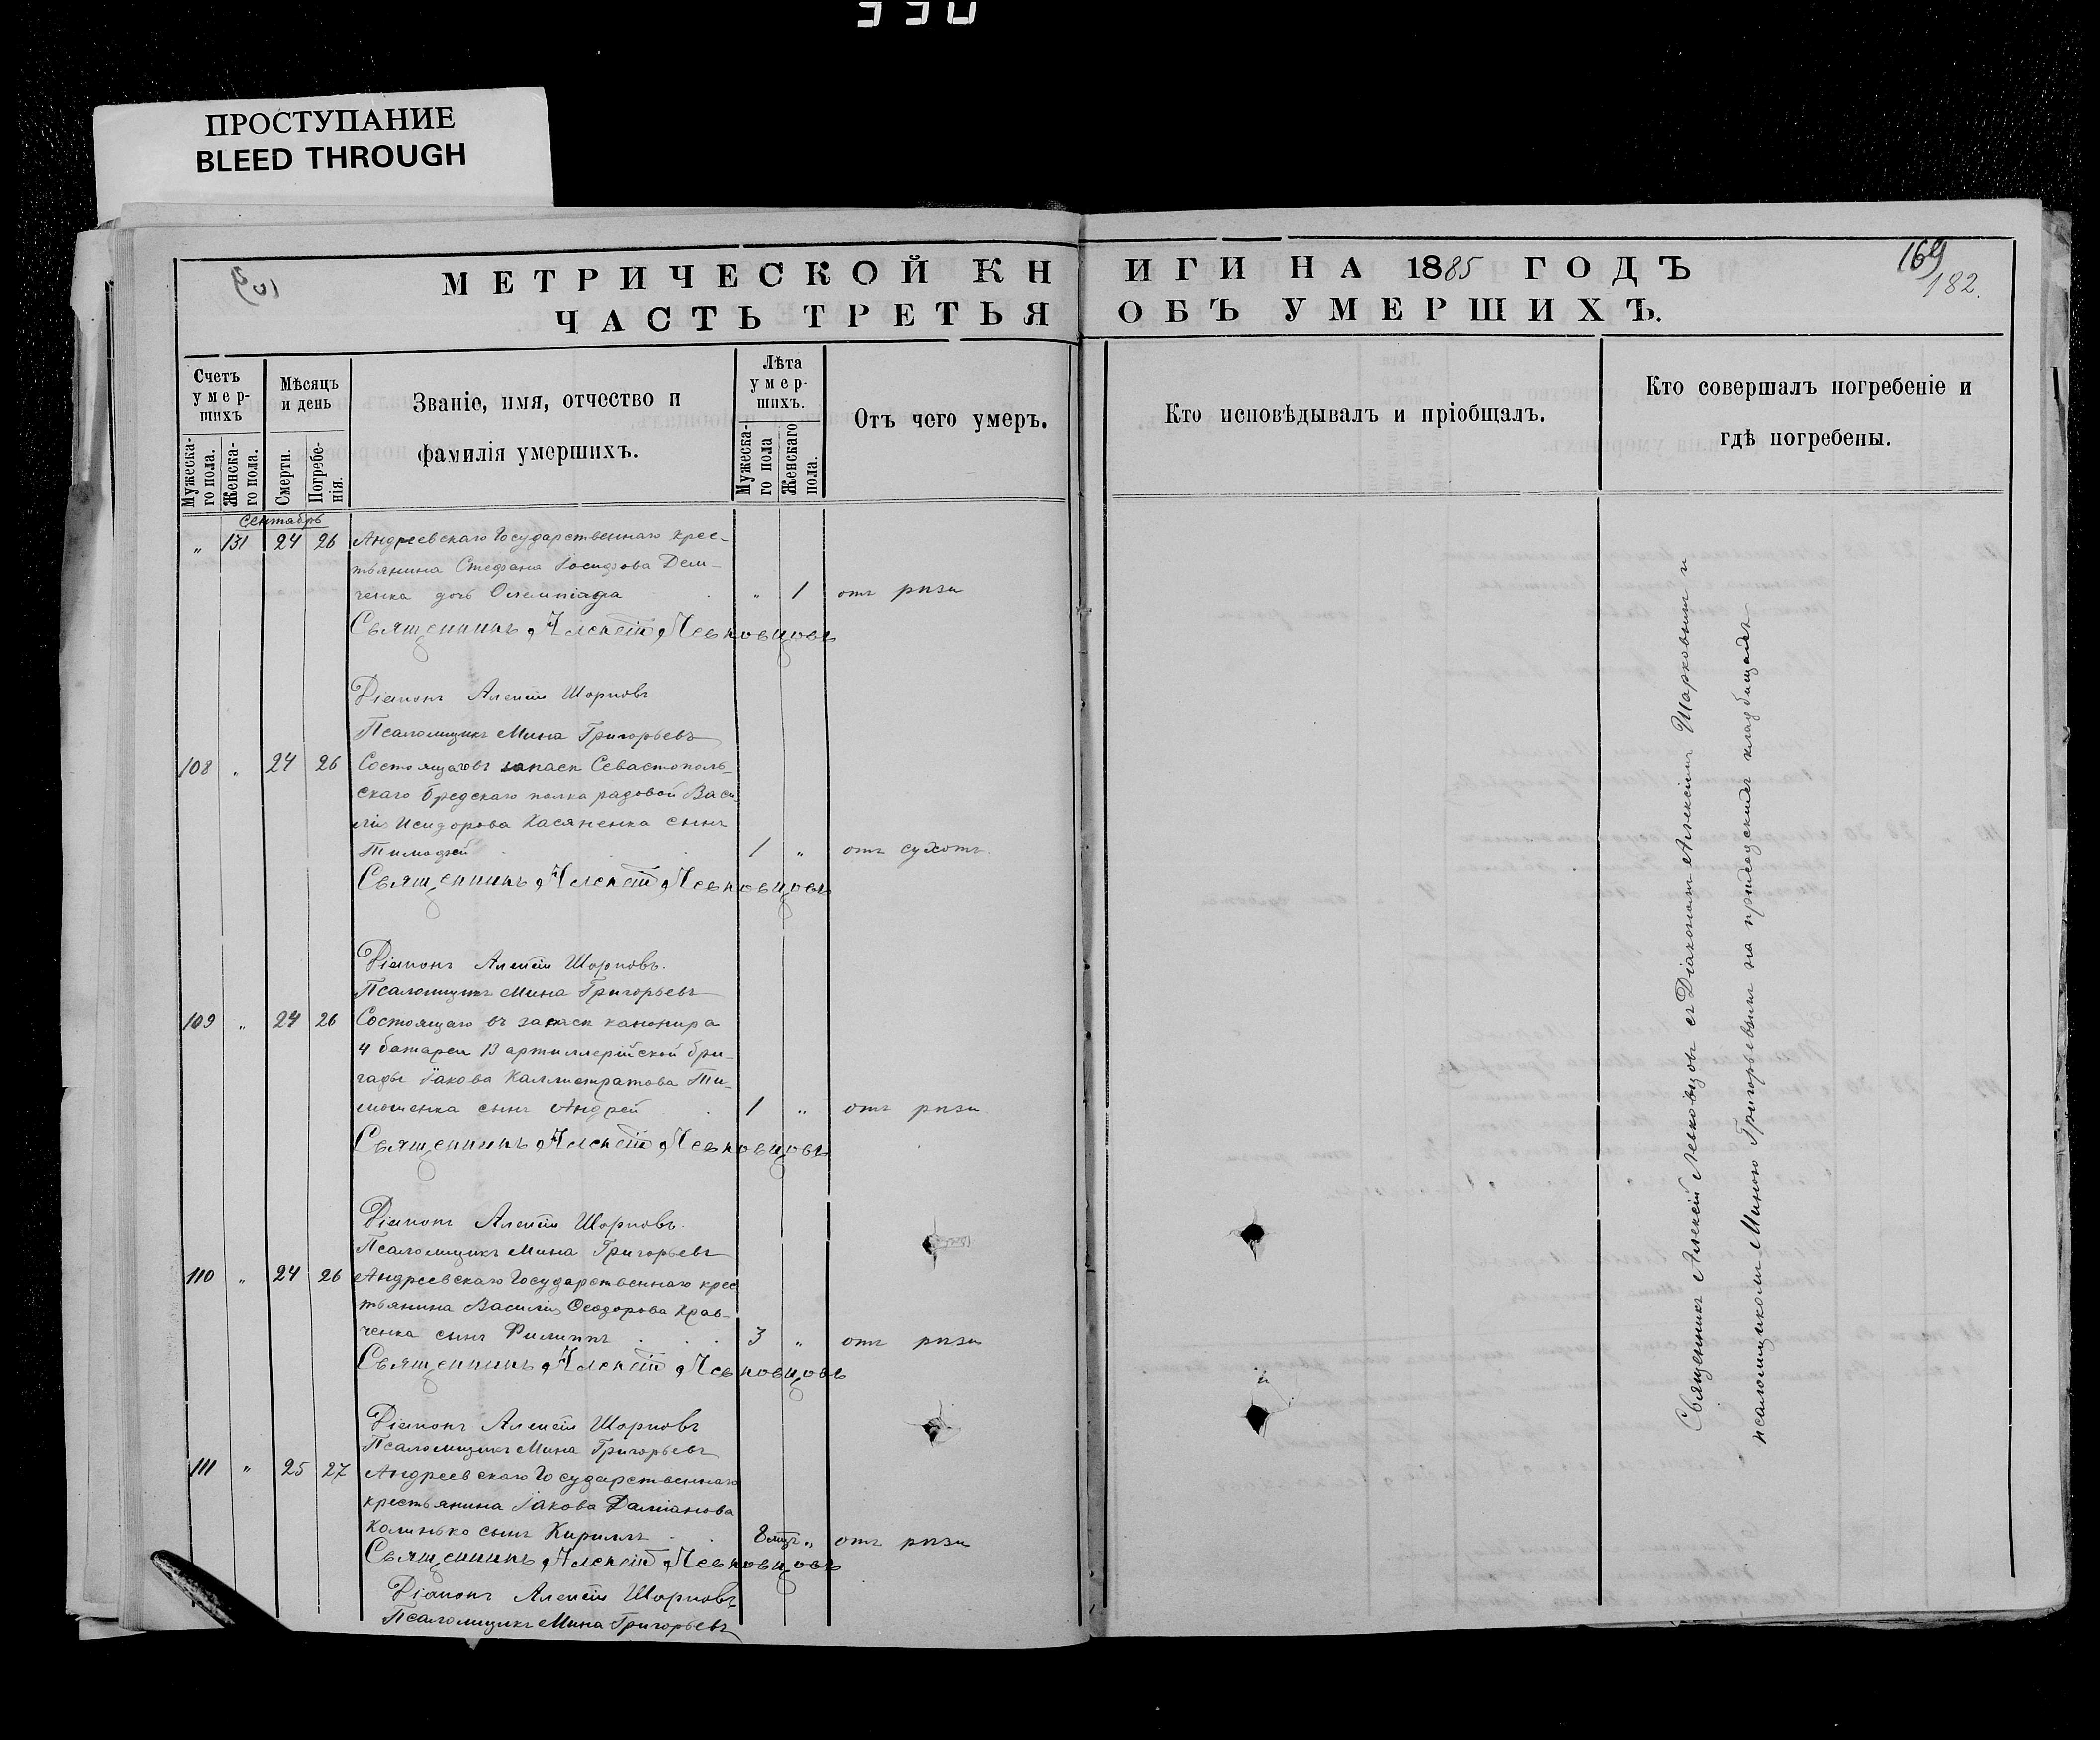 ПРОСТУПАНИЕ
BLEED THROUGH
МЕТРИЧЕСКОЙ КНИГИ НА 1885 ГОДЪ
169
182.
ЧАСТЬ ТРЕТЬЯ ОБЪ УМЕРШИХЪ.
Счетъ умершихъ
Мужескаго пола.
Женскаго пола.
Мѣсяцъ и день
Смерти.
Погребенія.
Званіе, имя, отчество и
фамилія умершихъ.
Лѣта умершихъ.
Мужескаго пола
Женскаго пола.
Отъ чего умеръ.
Кто исповѣдывалъ и пріобщалъ.
Кто совершалъ погребеніе и
гдѣ погребены.
Сентабрь
„ 131 24 26 Андреевскаго Государственнаго крес-
тьянина Стефана Іосифова Дем-
ченка дочь Олимпіада „ 1 отъ
Священникъ Алексій Левковцовъ
Діаконъ Алексій Шарковъ
Псаломщикъ Мина Григорьевъ
108 „ 24 26 Состоящаго въ запасѣ Севастополь-
скаго полка рядовой Васи-
лія Исидорова Касяненка сынъ
Тимофей 1 „ отъ сухотъ.
Священникъ Алексій Левковцовъ
Діаконъ Алексій Шарковъ.
Псаломщикъ Мина Григорьевъ
109 „ 24 26 Состоящаго въ запасѣ канонира
4 батареи 13 артиллерійской бри-
гады Іакова Каллистратова Ти-
мошенка сынъ Андрей 1 „ отъ
Священникъ Алексій Левковцовъ
Діаконъ Алексій Шарковъ.
Псаломщикъ Мина Григорьевъ
110 „ 24 26 Андреевскаго Государственнаго крес
тьянина Василія Ѳеодорова Крав-
ченка сынъ Филиппъ 3 „ отъ
Священникъ Алексій Левковцовъ
Діаконъ Алексій Шарковъ
Псаломщикъ Мина Григорьевъ
111 „ 25 27 Андреевскаго Государственнаго
крестьянина Іакова Даміанова
Калинько сынъ Кириллъ 8 мцъ „ отъ
Священникъ Алексій Левковцовъ
Діаконъ Алексій Шарковъ
Псаломщикъ Мина Григорьевъ
Священникъ Алексій Левковцовъ съ Діакономъ Алексіемъ Шарковымъ и
псаломщикомъ Миною Григорьевымъ на приходскихъ кладбищахъ